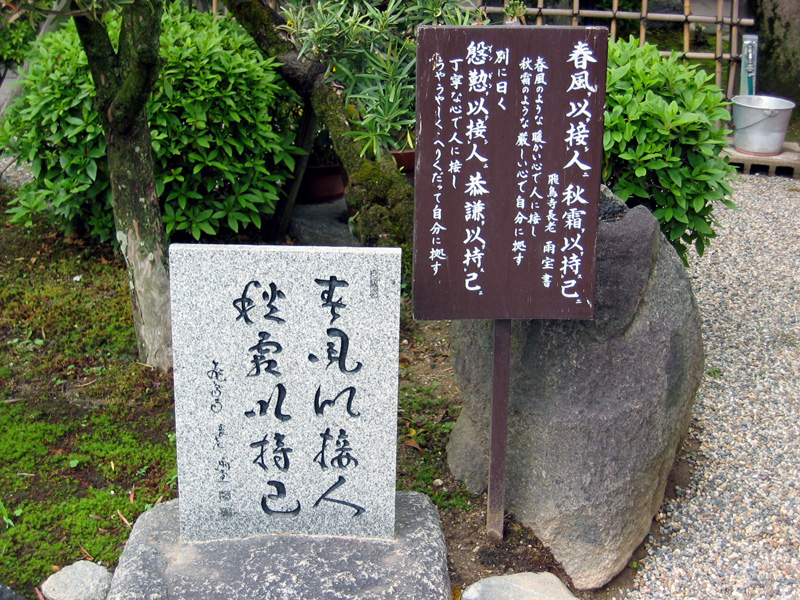 春風以接人ニ 秋霜以持己ニ
飛鳥寺長老 雨宝書
春風のような 暖かい心で人に接し
秋霜のような 厳しい心で自分に拠す
別に曰く
慇懃以接人、恭謙以持己ニ
丁寧な心で人に接し
うやうやしく、へりくだって自分に拠す
春風以接人
秋霜以持己
飛鳥寺 長老 雨宝